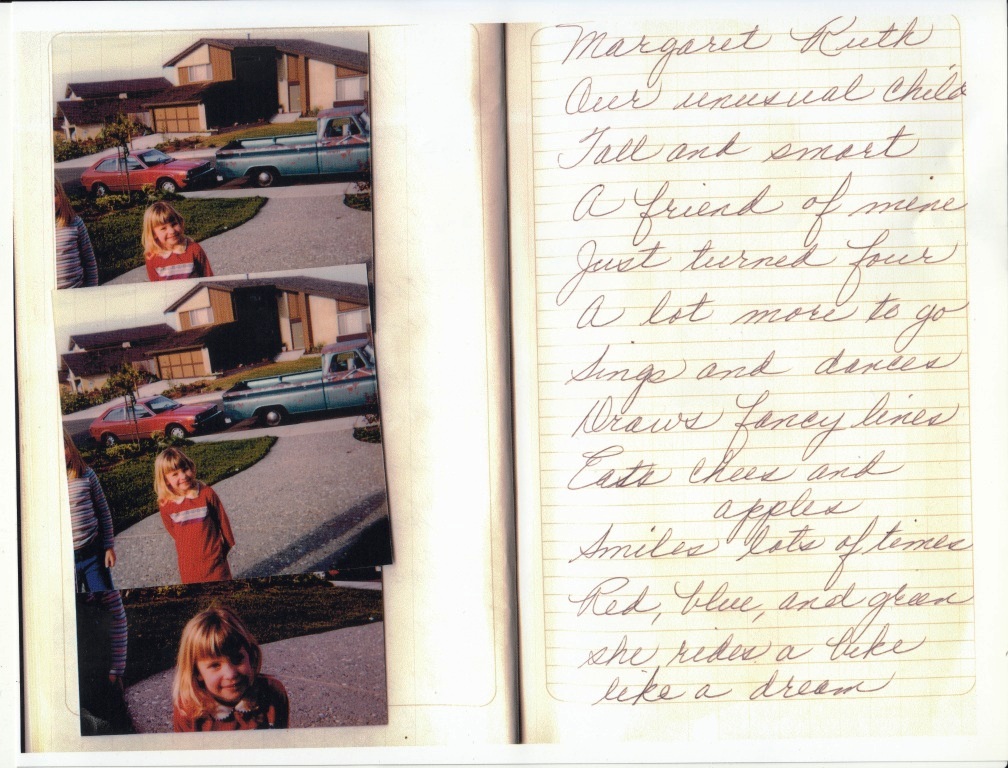 Margaret Ruth
Our unusual child
Tall and smart
A friend of mine
Just turned four
A lot more to go
Sings and dances
Draws fancy lines
Eats chees and
apples
Smiles lots of times
Red, blue, and green
she rides a bike
like a dream